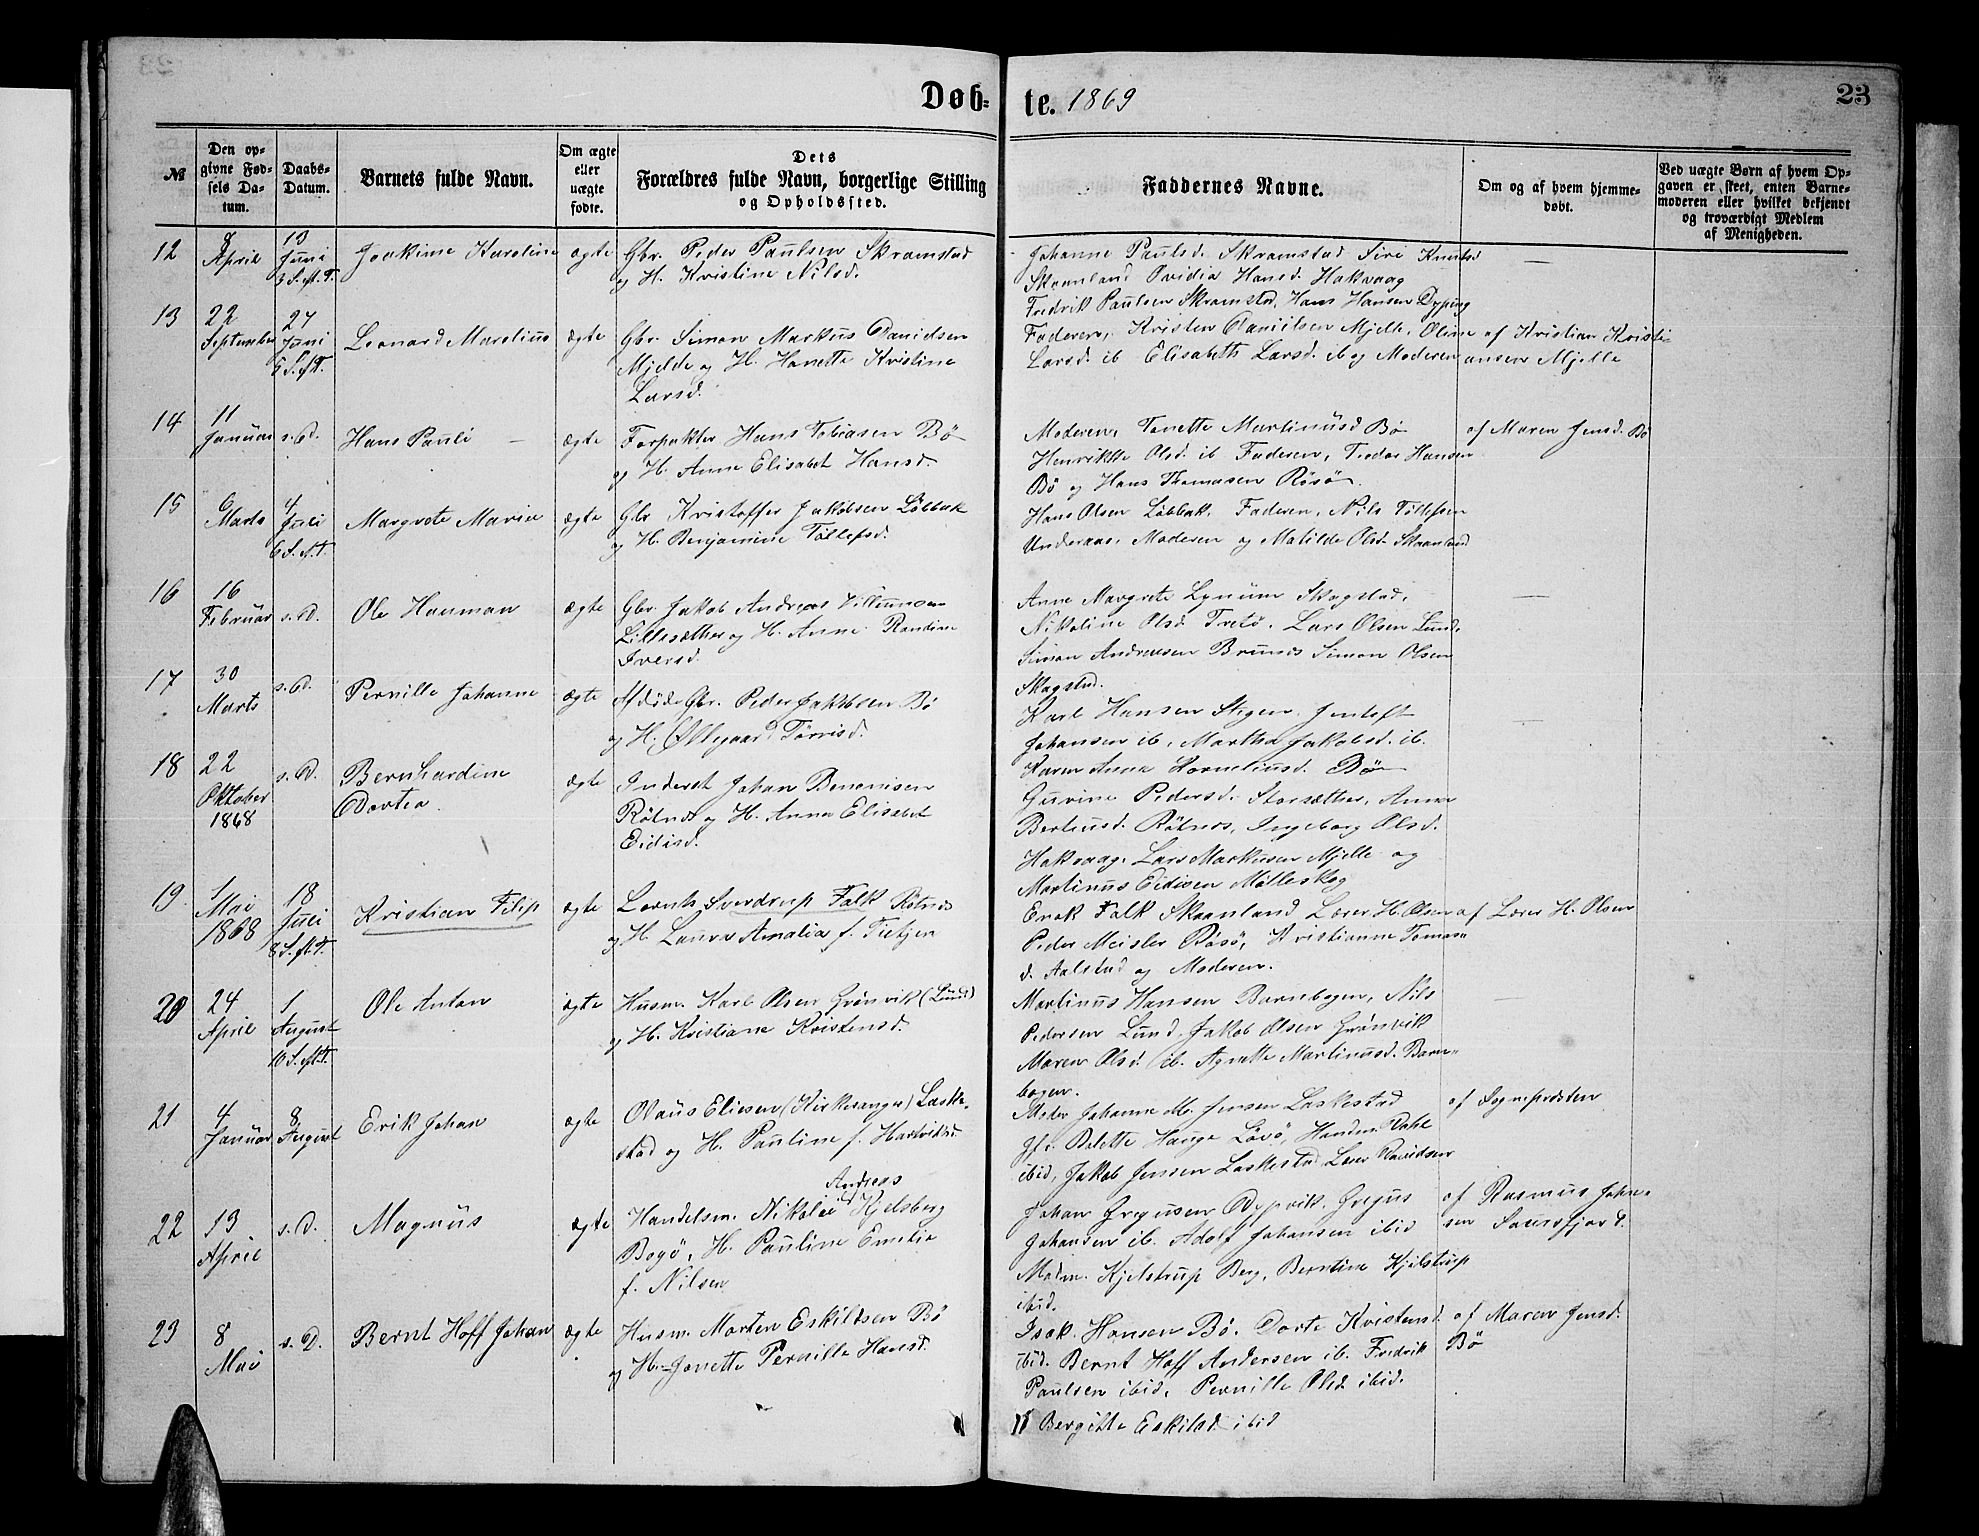 Døb-
te. 1869
23
№
Den op-
givne Fød-
sels Da-
tum.
Daabs-
Datum.
Barnets fulde Navn.
Om ægte
eller
uægte
fødte.
Dets
Forældres fulde Navn, borgerlige Stilling
og Opholdssted.
Faddernes Navne.
Om og af hvem hjemme-
døbt.
Ved uægte Børn af hvem Op-
gaven er skeet, enten Barne-
moderen eller hvilket bekjendt
og troværdigt Medlem
af Menigheden.
12
8
April
13
Juni
3 S. eft. T.
Joakime Karoline
ægte
Gbr. Peder Paulsen Skramstad
og H. Kristine Nilsd.
Johanne Paulsd. Skramstad Siri Knutsd
Skaanland Ovidia Hansd. Hakvaag
Fredrik Paulsen Skramstad, Hans Hansen Dyping
—
13
22
September
27
Juni
5 S. eft. T.
Leonard Marelius
ægte
Gbr. Simon Markus Danielsen
Mjelde og H. Hanette Kristine
Larsd.
Faderen, Kristen Danielsen Mjelle, Oline
Larsd. ib Elisabeth Larsd. ib og Moderen
af Kristian Kristi-
ansen Mjelle
14
11
Januar
s. D.
Hans Pauli —
ægte
Forpakter Hans Tobiasen Bö
og H. Anne Elisabet Hansd.
Moderen, Tanette Martinusd Bö
Henrikke Olsd. ib Faderen, Peder Hansen
Bö og Hans Thomasen Rösö.
af Maren Jensd. Bö
15
6
Marts
4
Juli
6 S. e. T.
Margrete Marie
ægte
Gbr Kristoffer Jakobsen Löbbak
og H. Benjamine Tollefsd.
Hans Olsen Löbbak, Faderen, Nils Tollefsen
Underaas, Moderen og Matilde Olsd. Skaanland
16
16
Februar
s. D.
Ole Hauman
ægte
Gbr. Jakob Andreas Villumsen
Lillesæther og H. Anne Randine
Iversd.
Anne Margrete Lynum Skagstad,
Nikoline Olsd. Tretö. Lars Olsen Lund,
Simon Andreasen Brunes Simon Olsen
Skagstad.
—
17
30
Marts
s. D.
Pernille Johanne
ægte
Afdöde Gbr. Peder Jakobsen Bö
og H. Ollegaard Törrisd.
Karl Hansen Stigen. Jentoft
Johansen ib, Martha Jakobsd. ib.
Karen Anna Korneliusd. Bö
—
18
22
Oktober
1868
s. D.
Bernhardine
Dortea
ægte
Inderst Johan Benonisen
Rötnes og H. Anna Elisabet
Eidisd.
Gurine Pedersd. Storsæther, Anna
Bertheusd. Rötnes, Ingeborg Olsd.
Hakvaag. Lars Markusen Mjelle og
Martinus Eidisen Mölleskog
19
1
Mai
1868
18
Juli
8 S. eft. T.
Kristian Filip
ægte
Lornts Sverdrup Falk Rötnes
og H. Laura Amalia f. Tietjen
Enok Falk Skaanland Lærer H. Olsen
Peder Meisler Rösö, Kristianne Tomas-
d. Aalstad og Moderen.
af Lærer H. Olsen
20
24
April
1
August
10 S. eft. T.
Ole Antan
ægte
Husm. Karl Olsen Grönvik (Lund)
og H. Kristiane Kristensd.
Martinus Hansen Barnbogen, Nils
Pedersen Lund. Jakob Olsen Grönvik
Maren Olsd. ib. Agnette Martinusd. Barn-
bogen.
—
21
4
Januar
8
August
Erik Johan
ægte
Olaus Eliesen (Kirkesanger) Laske-
stad og H. Pauline f. Hartviksd.
Mdm Johanne M. Jensen Laskestad
Jfr. Belette Hauge Lövö, Handm. Dahl
ibid, Jakob Jensen Laskestad Lærer Davidsen
af Sognepræsten
22
13
April
s. D.
Magnus
ægte
Andreas
Handelsm. Nikolai Kjelsberg
Bogö, H. Pauline Emelie
f. Nilsen
Johan Gregusen Dypvik. Gregus
Johansen ib. Adolf Johansen ibid
Madm. Kjelstrup Berg, Berntine Kjelstrup
ibid.
af Rasmus Johan-
sen Saursfjord.
23
8
Mai
s. D.
Bernt Hoff Johan
ægte
Husm. Morten Eskildsen Bö
og H. Janette Pernille Hansd.
Isak Hansen Bö. Dorte Kristensd.
ibid. Bernt Hoff Andersen ib. Fredrik
Paulsen ibid, Pernille Olsd. ibid.
Bergitte Eskilsd. ibid
af Maren Jensd.
Bö